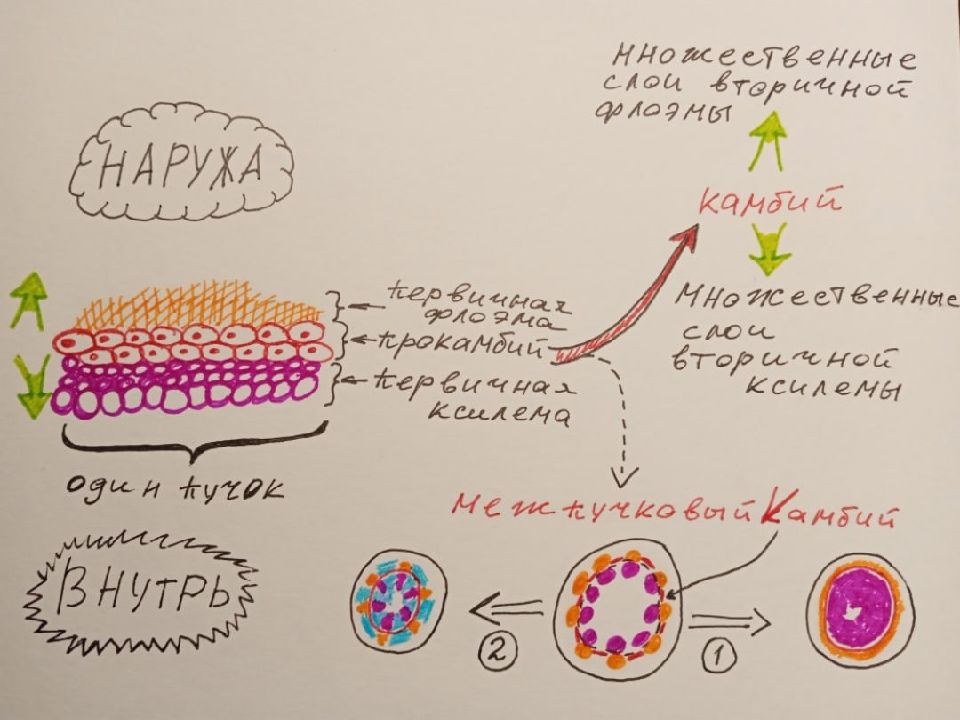 множественные
слои вторичной
флоэмы
НАРУЖА
камбий
первичная
флоэма
прокамбий
первичная
ксилема
множественные
слои
вторичной
ксилемы
один пучок
межпучковый камбий
ВНУТРЬ
2
1